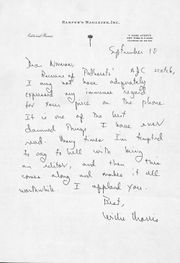 HARPER'S MAGAZINE, INC.
Editorial Rooms
September 18
Dear Norman
I may not have adequately
expressed my immense regard
for your piece on the phone.
It is one of the best
damned things I have ever
read. Many times I'm tempted
to say to hell with being
an editor, and then this
comes along and makes it all
worthwhile. I applaud you.
Best,
Willie Morris